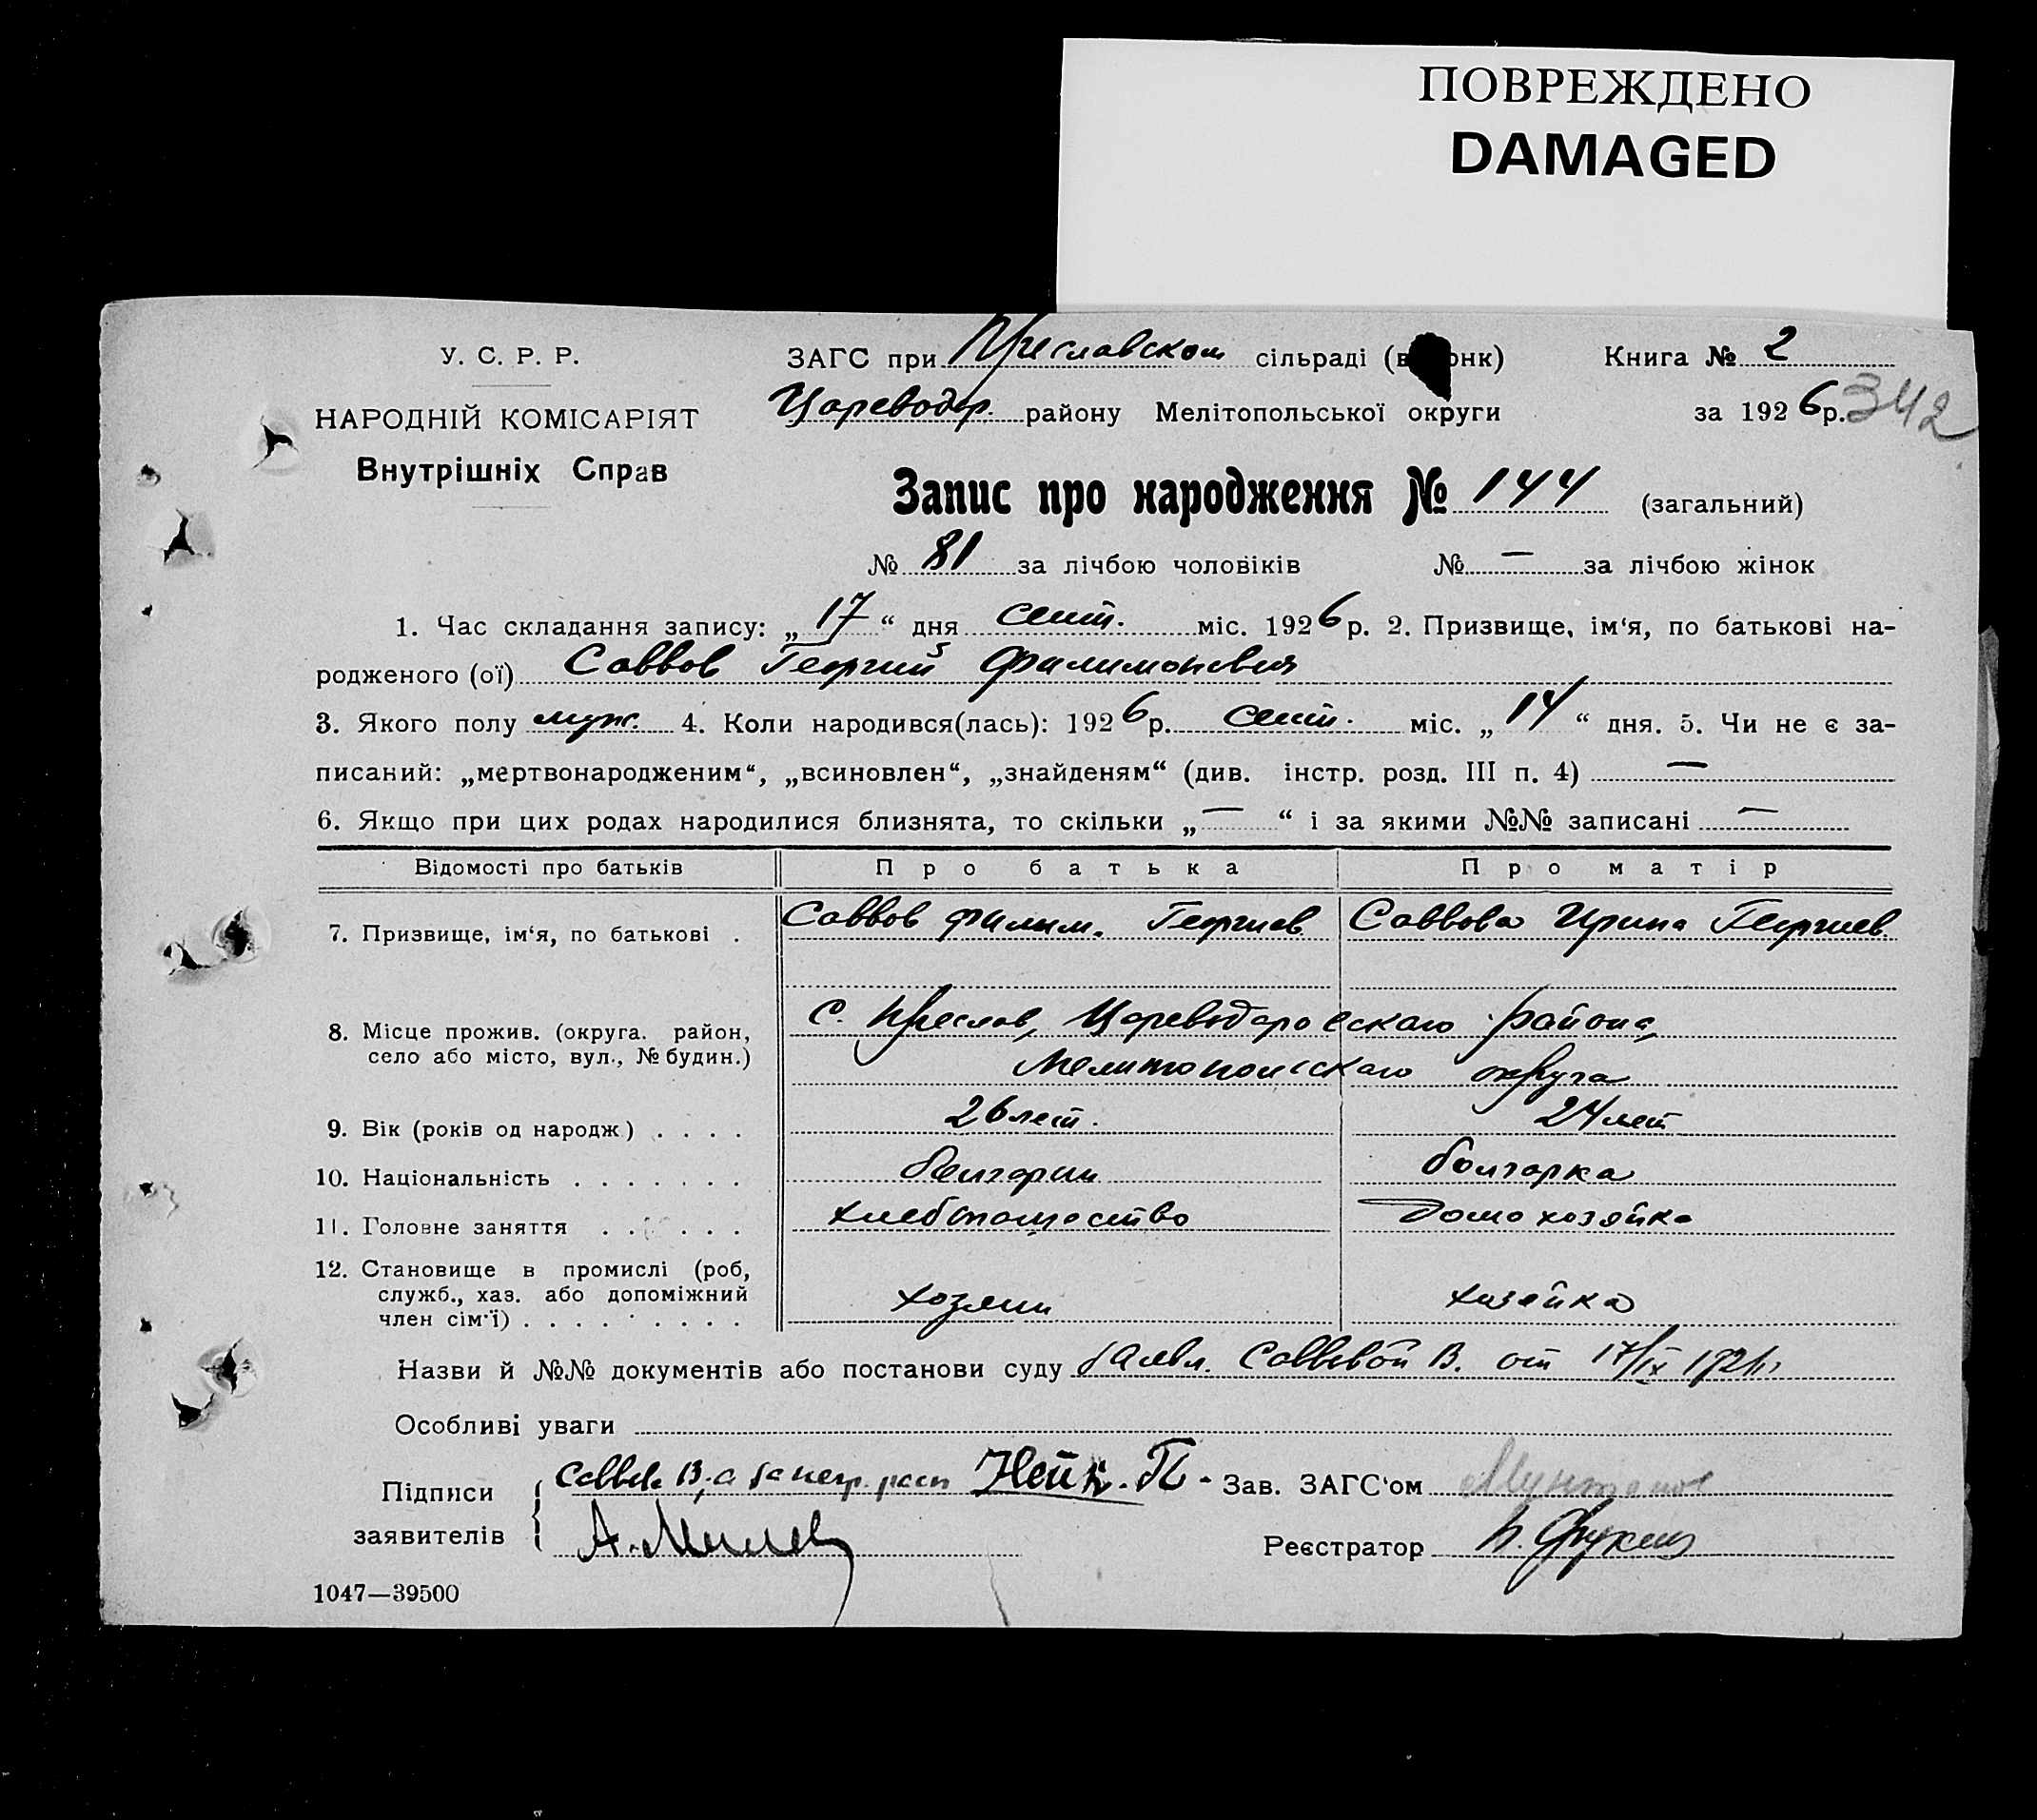 ПОВРЕЖДЕНО
DAMAGED
У. С. Р. Р.
ЗАГС при Преславском сільраді (в онк)
Книга № 2
НАРОДНІЙ КОМІСАРІЯТ
Цареводар. району Мелітопольської округи
за 1926р. 342
Внутрішніх Справ
Запис про народження № 144 (загальний)
№ 81 за лічбою чоловіків № — за лічбою жінок
1. Час складання запису: „17“ дня сент. міс. 1926р. 2. Призвище, ім‘я, по батькові на-
родженого (ої) Саввов Георгий Филимонович
3. Якого полу муж. 4. Коли народився(лась): 1926р. сент. міс. „14“ дня. 5. Чи не є за-
писаний: „мертвонародженим“, „всиновлен“, „знайденям“ (див. інстр. розд. III п. 4) —
6. Якщо при цих родах народилися близнята, то скільки „—“ і за якими №№ записані —
Відомості про батьків Про батька Про матір
7. Призвище, ім‘я, по батькові . Саввов Филим. Георгиев. Саввова Ирина Георгиев.
8. Місце прожив. (округа. район, село або місто, вул., № будин.) С. Преслав, Цареводаровскаго района,
Мелитопольскаго округа
9. Вік (років од народж) . . . . 26 лет. 24 лет
10. Національність . . . . . . . болгарин болгарка
11. Головне заняття . . . . . . хлебопашество домохозяйка
12. Становище в промислі (роб,
служб., хаз. або допоміжний
член сім‘ї) . . . . . . . . . . хозяин хозяйка
Назви й №№ документів або постанови суду Заявл. Саввовой В. от 17/IX 192
Особливі уваги
Підписи Саввова В., а за негр. расп Нейк. П. Зав. ЗАГС‘ом
заявителів А. Милев Реєстратор
1047—39500